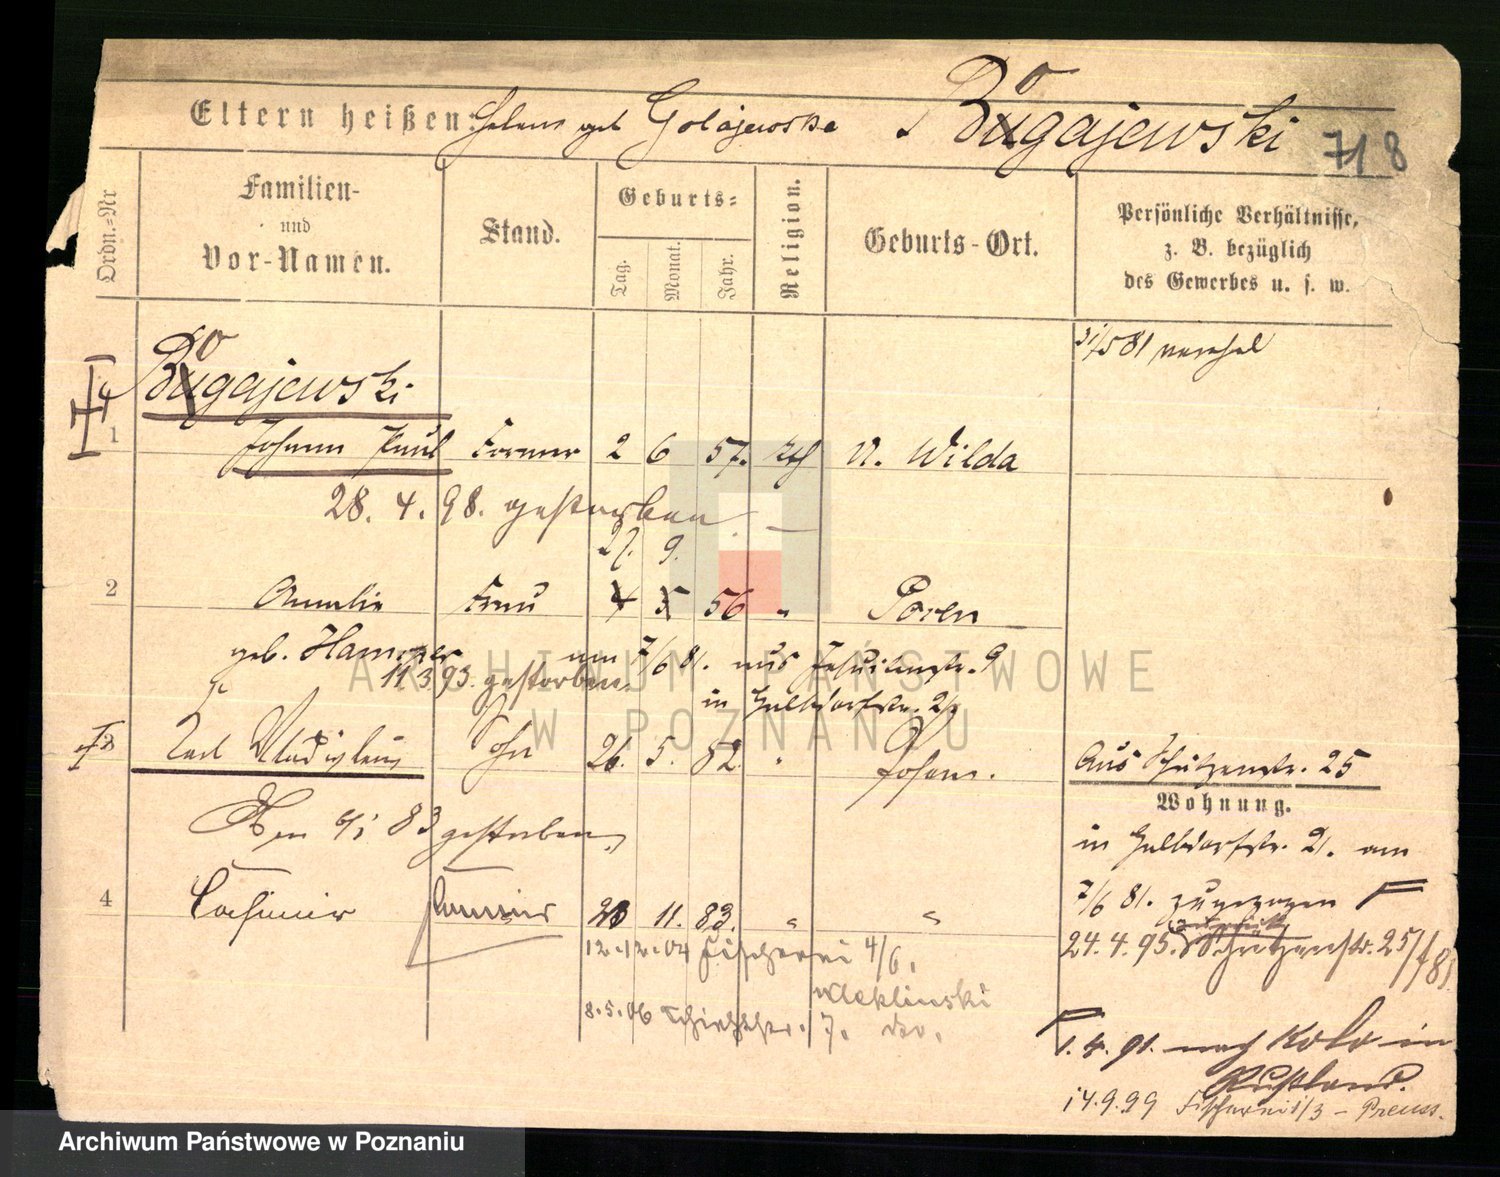 Eltern heißen: Helene geb Golajewska Bogajewski 718
Ordn.-Nr
Familien-
und
Vor-Namen.
Stand.
Geburts-
Tag.
Monat.
Jahr.
Religion.
Geburts-Ort.
Persönliche Verhältnisse,
z. B. bezüglich
des Gewerbes u. s. w.
31/5 81
Bogajewski
1 Johann Paul Former 2 6 57. kth U. Wilda
28. 4. 98. gestorben
27. 9.
2 Amalie Frau 4 5 56 " Posen
geb. Hammer am 7/6 81. aus Jesuitenstr. 9
11.3.93. gestorben. in Halbdorfstr. 21
3 Carl Wladislaus Sohn 26. 5. 82. " Posen.
Aus Schützenstr. 25
Wohnung.
Am 9/1 83 gestorben
in Halbdorfstr. 21. am
7/6 81. zugezogen
4 Casimir 23 11. 83. " "
24.4.95. Schützenstr. 25
12.12.04 Fischerei 4/6.
Meklinski
8.5.06 7. do.
1. 4. 91. nach Kolo in
Russland.
14.9.99 Fischerei 1/3 - Preuss.
ARCHIWUM PAŃSTWOWE
W POZNANIU
Archiwum Państwowe w Poznaniu